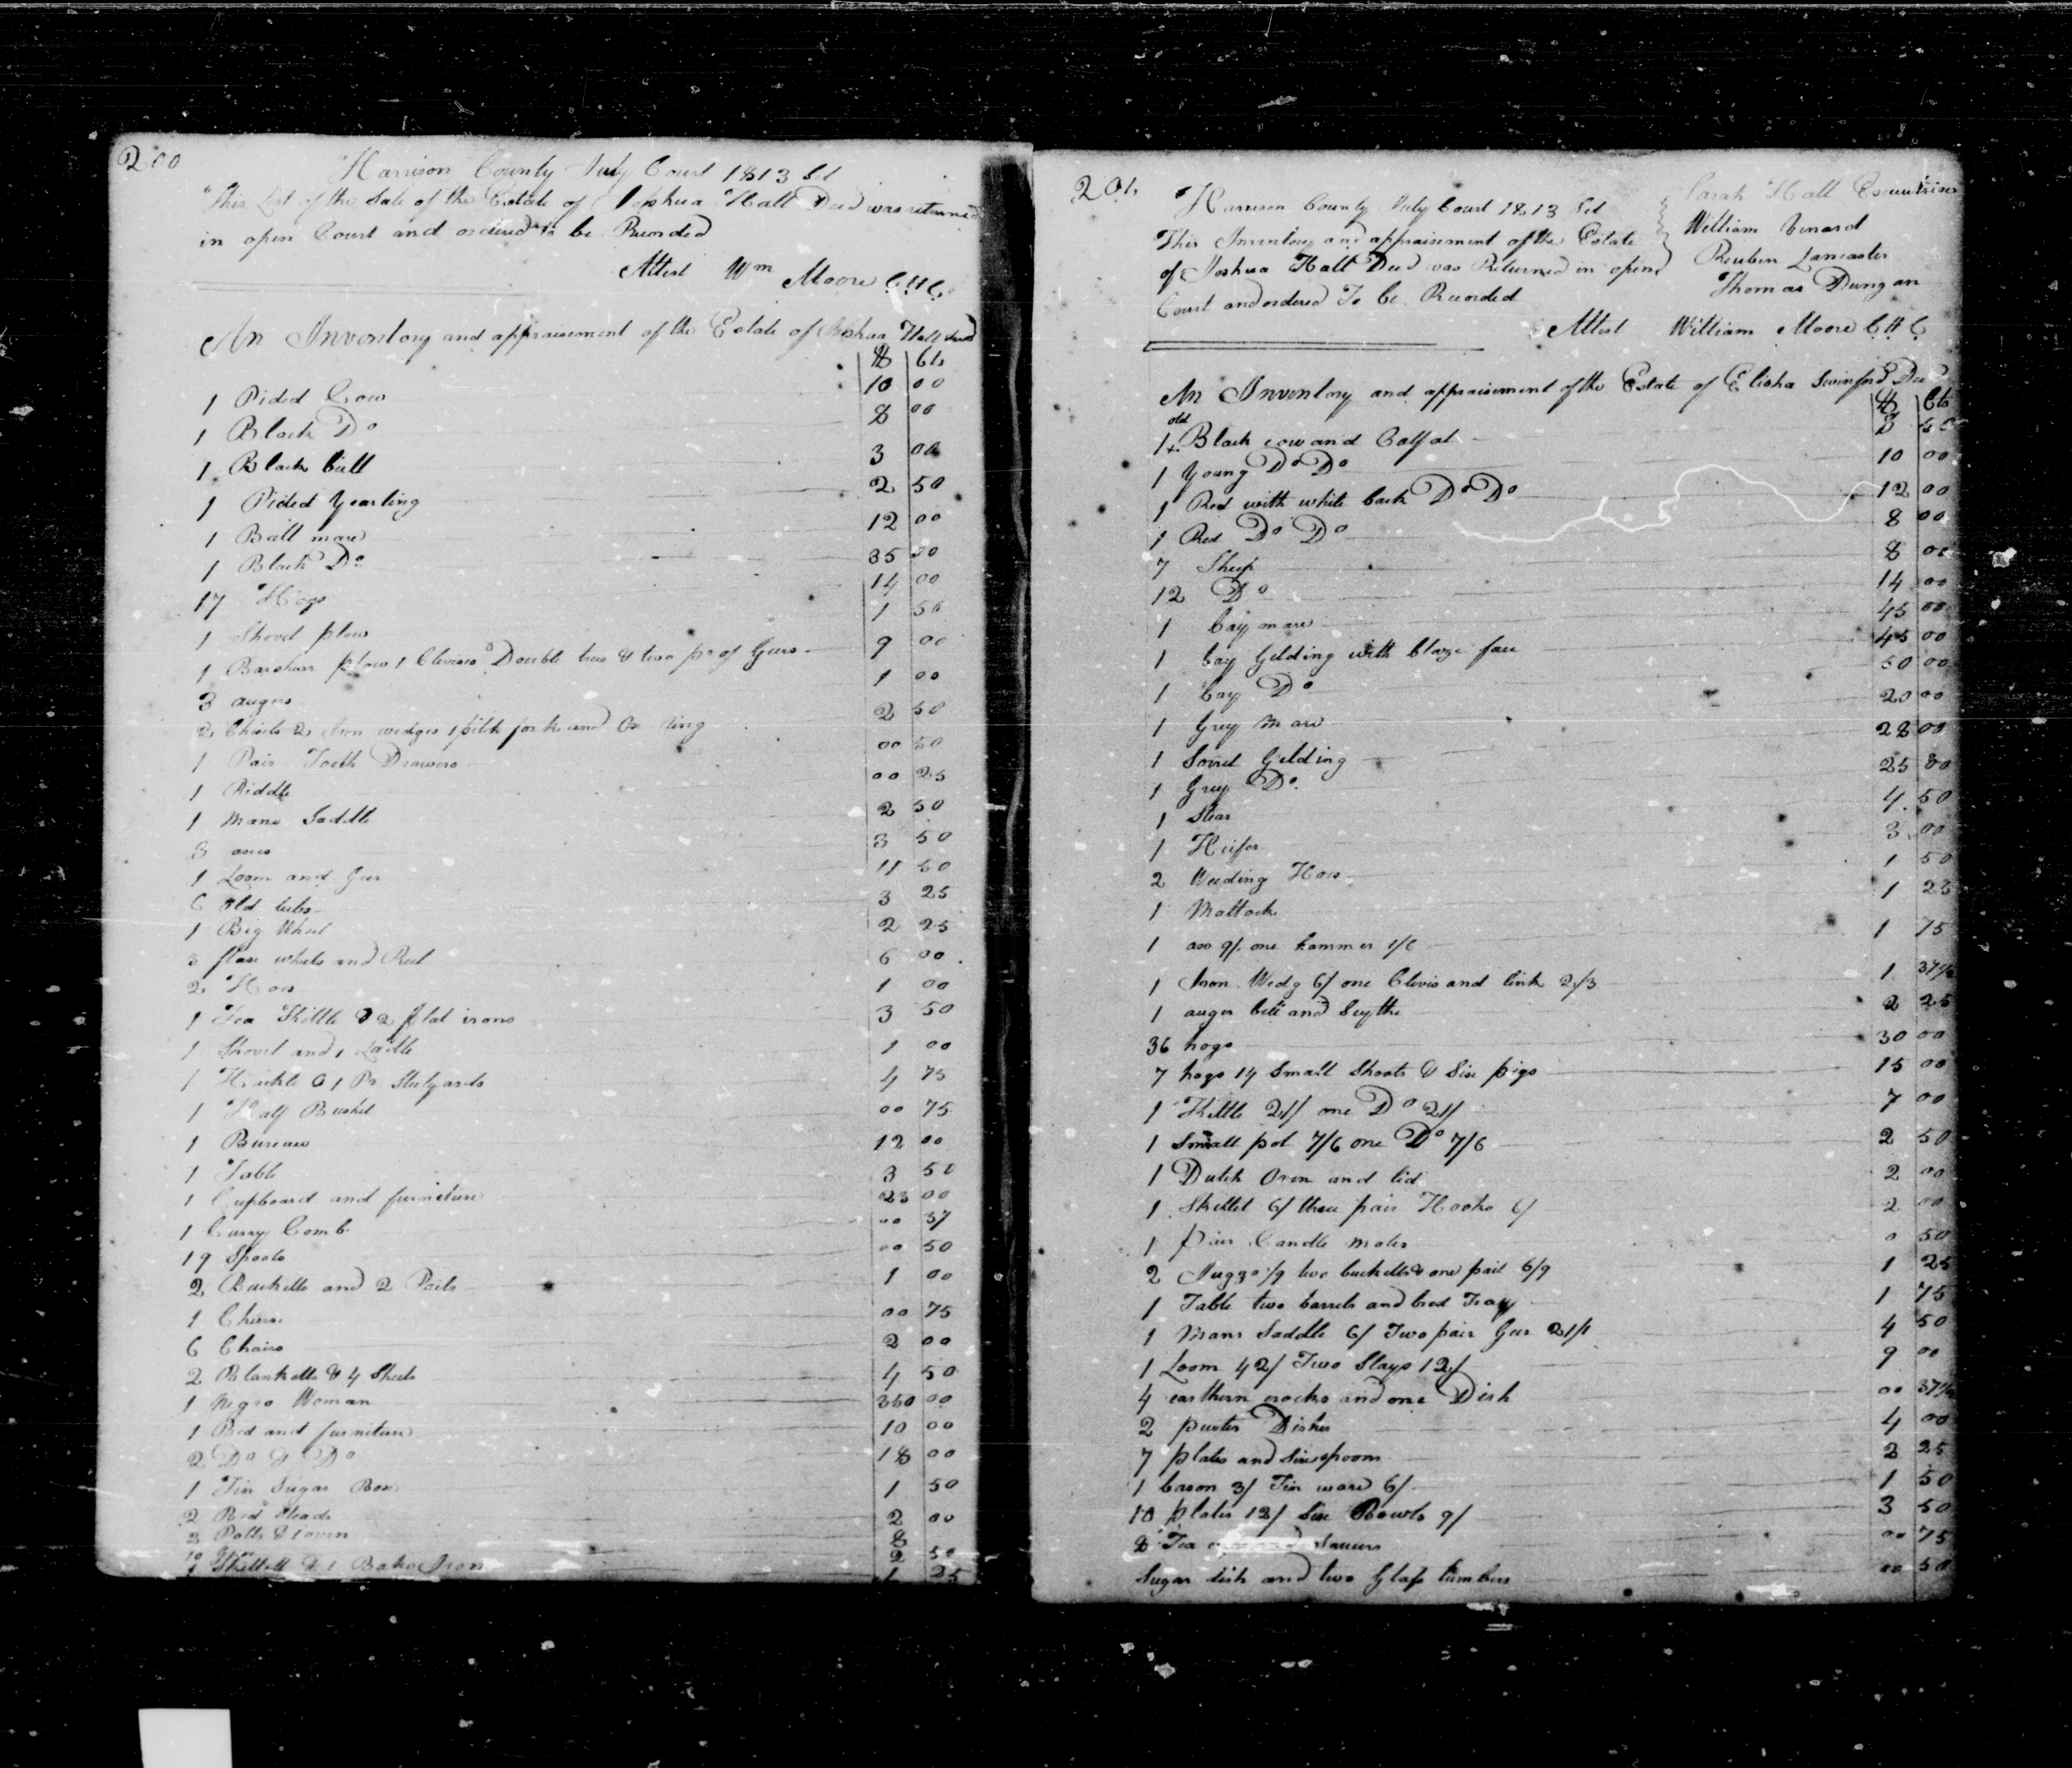 200
Harrison County July Court 1813 Sct
This List of the Sale of the Estate of Joshua Hall Decd was returned
in open Court and ordered to be Recorded
Attest Wm Moore C.H.C.
An Inventory and appraisement of the Estate of Joshua Hall decd
$ Cts
1 Pided Cow 10 00
1 Black Do 8 00
1 Black bull 3 00
1 Pided Yearling 2 50
1 Ball mare 12 00
1 Black Do 35 00
17 Hogs 14 00
1 Shovel plow 1 50
1 Barshare plow 1 Clevises Double tree & two pr of Gears 9 00
3 augers 1 00
2 Chisels 2 Iron wedges 1 pitch fork and Ox ring 2 50
1 Pair Tooth Drawers 00 50
1 Riddle 00 25
1 Mans Saddle 2 50
3 axes 3 50
1 Loom and Gear 11 50
6 Old tubs 3 25
1 Big Wheel 2 25
3 flax wheels and Reel 6 00
2 Hoes 1 00
1 Tea Kittle & 2 flat irons 3 50
1 Shovel and 1 Ladle 1 00
1 Hackle & 1 Pr Stilyards 4 75
1 Half Bushel 00 75
1 Bureau 12 00
1 Table 3 50
1 Cupboard and furniture 23 00
1 Curry Comb 00 37
19 Spools 00 50
2 Bucketts and 2 Pails 1 00
1 Churn 00 75
6 Chairs 2 00
2 Blanketts & 4 Sheets 4 50
1 Negro Woman 350 00
1 Bed and furniture 10 00
2 Do & Do 18 00
1 Tin Sugar Box 1 50
2 Bed Steads 2 00
2 Potts & 1 oven 8
10 2 50
1 Skillett & 1 Bake Iron 1 25
201
Harrison County July Court 1813 Sct
This Inventory and appraisement of the Estate
of Joshua Hall Decd was Returned in open
Court and ordered To be Recorded
Sarah Hall Executrix
William Venard
Reuben Lancaster
Thomas Dungan
Attest William Moore C.H.C
An Inventory and appraisement of the Estate of Elisha Swinford Decd
$ Cts
1 old Black cow and Calf at 8 50
1 Young Do Do 10 00
1 Red with white back Do Do 12 00
1 Red Do Do 8 00
7 Sheep 8 00
12 Do 14 00
1 bay mare 45 00
1 bay Gelding with blaze face 45 00
1 bay Do 50 00
1 Grey Mare 20 00
1 Sorrel Gelding 28 00
1 Grey Do 25 00
1 Stear 4 50
1 Heifer 3 00
2 Weeding Hoes 1 50
1 Mattock 1 25
1 axe 9/ one hammer 1/6 1 75
1 Iron Wedg 6/ one Clevis and link 2/3 1 37½
1 auger bell and Scythe 2 25
36 hogs 30 00
7 hogs 14 Small Shoots & Six pigs 15 00
1 Kittle 21/ one Do 21/ 7 00
1 Small pot 7/6 one Do 7/6 2 50
1 Dutch Oven and lid 2 00
1 Skillet 6/ three pair Hooks 6/ 2 00
1 pair Candle moles 0 50
2 Juggs /9 two bucketts & one pail 6/9 1 25
1 Table two barrels and bred Tray 1 75
1 Mans Saddle 6/ Two pair Gear 21/ 4 50
1 Loom 42/ Two Slays 12/ 9 00
4 earthern crocks and one Dish 00 37½
2 puter Dishes 4 00
7 plates and Six spoons 2 25
1 bason 3/ Tin ware 6/ 1 50
10 plates 12/ Six Bowls 9/ 3 50
8 Tea Saucers 00 75
Sugar dish and two Glass tumblers 00 50